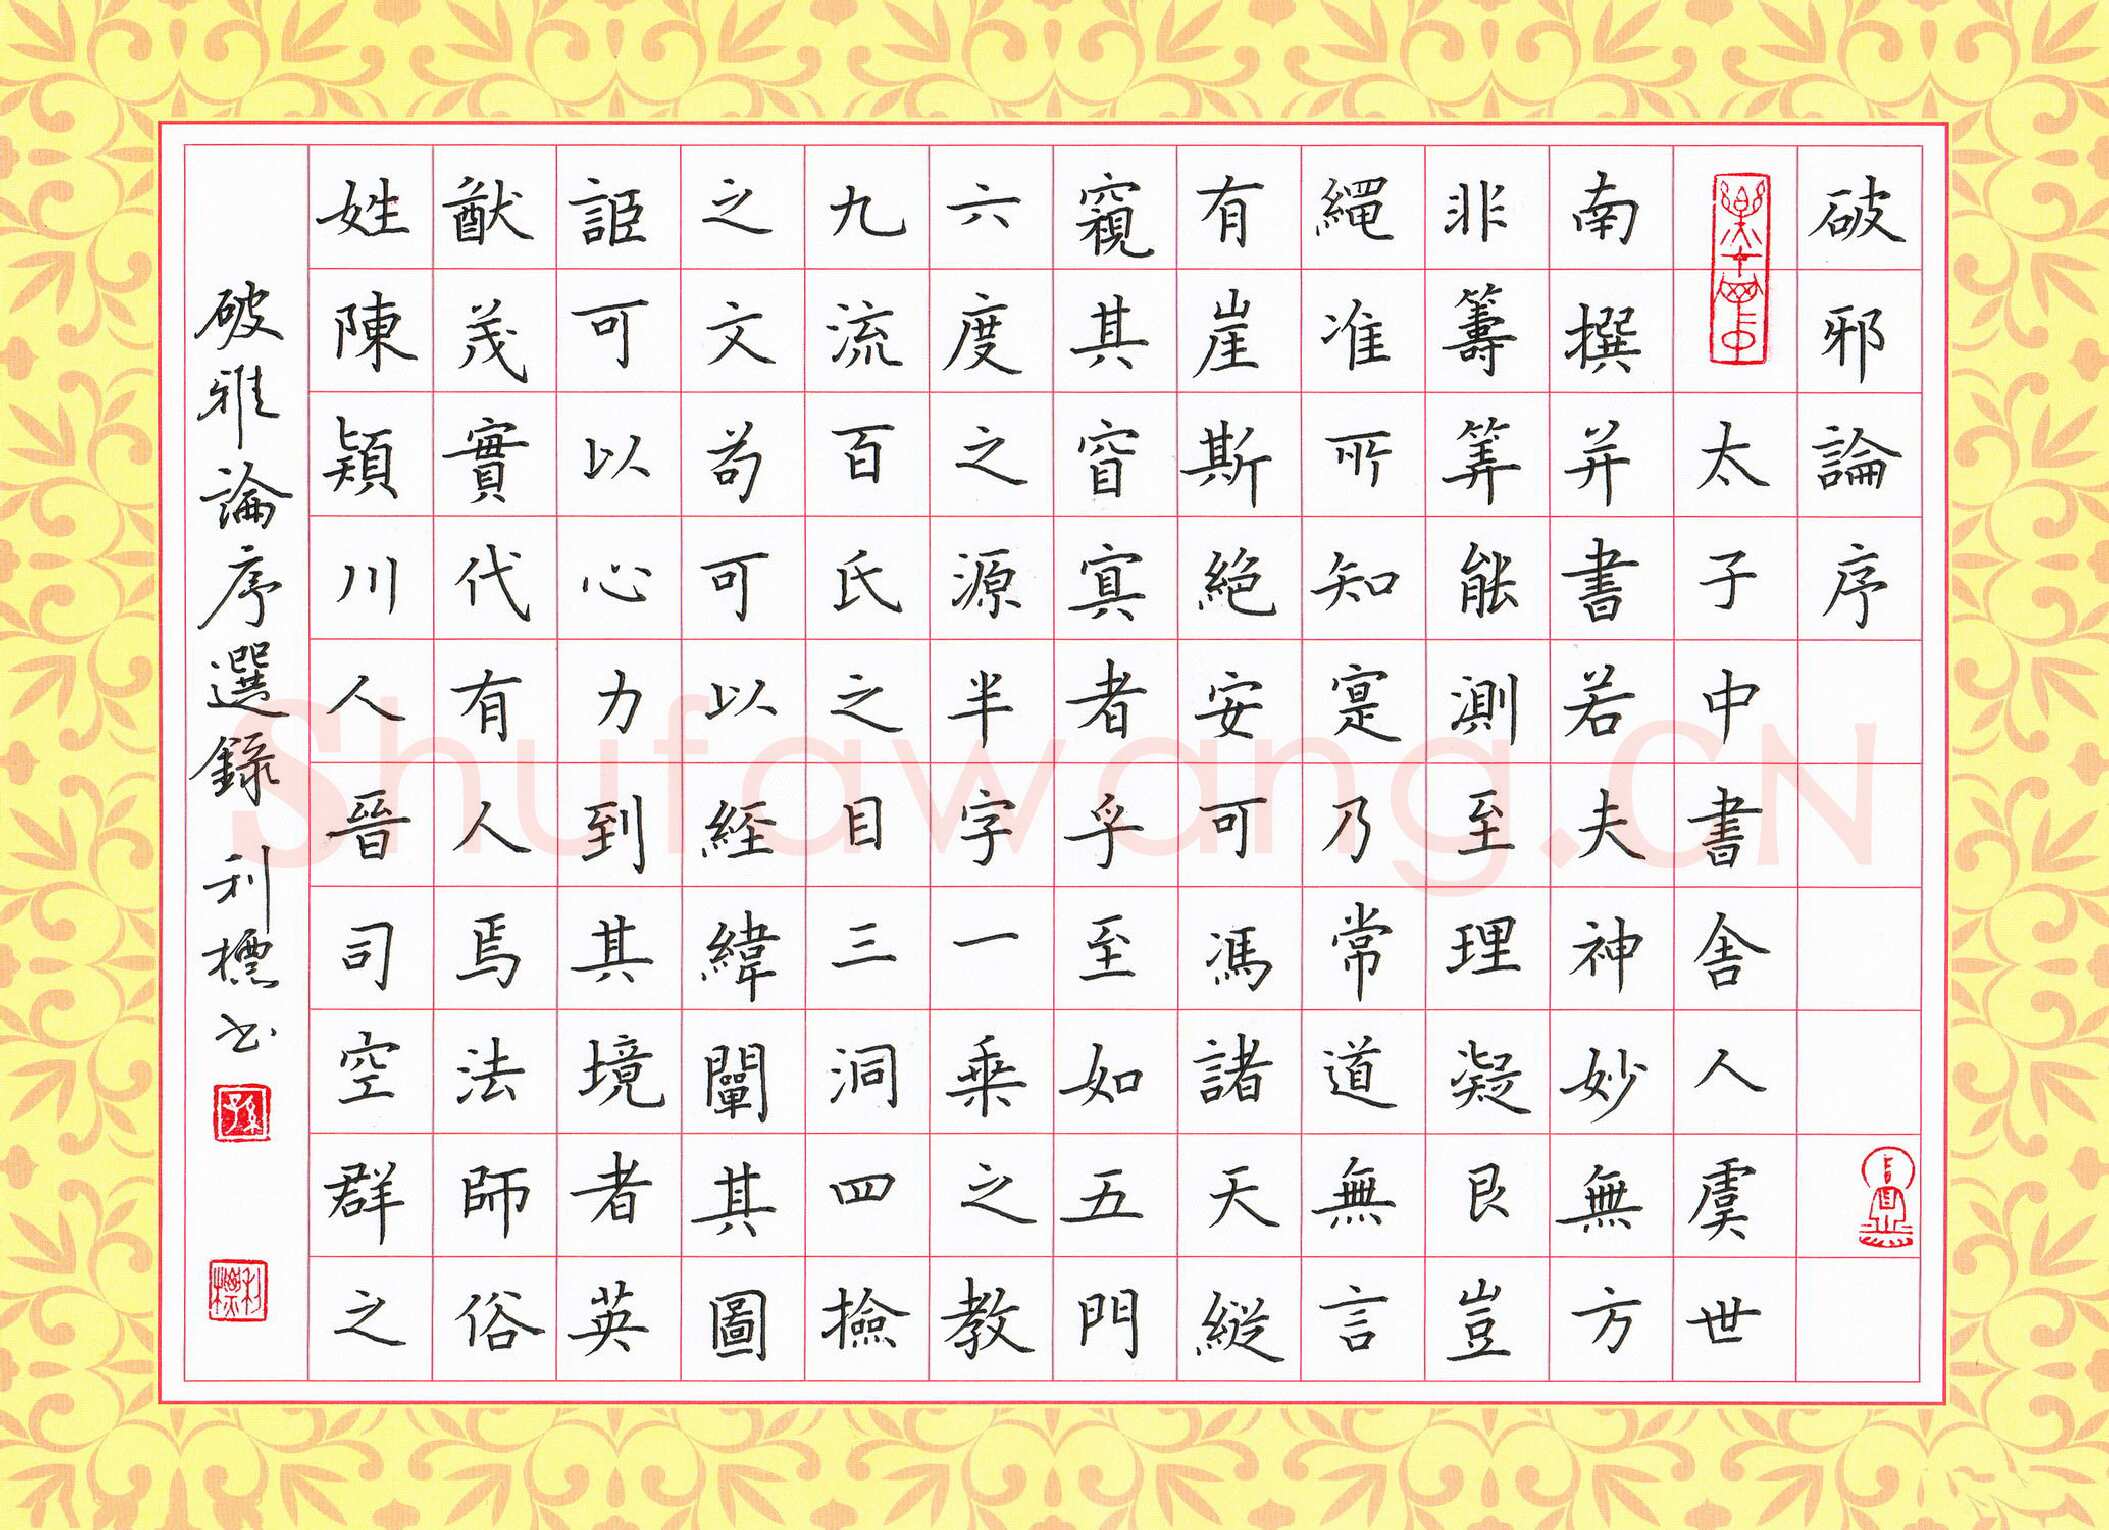 破邪論序
太子中書舍人虞世
南撰并書若夫神妙無方
非籌筭能測至理凝邈豈
繩准所知寔乃常道無言
有崖斯絕安可馮諸天縱
窺其窅寘者乎至如五門
六度之源半字一乗之教
九流百氏之目三洞四撿
之文苟可以經緯闡其圖
詎可以心力到其境者英
猷茂實代有人焉法師俗
姓陳潁川人晉司空群之
破雅論序選錄 利標书
孫
利標
Shufawang.CN